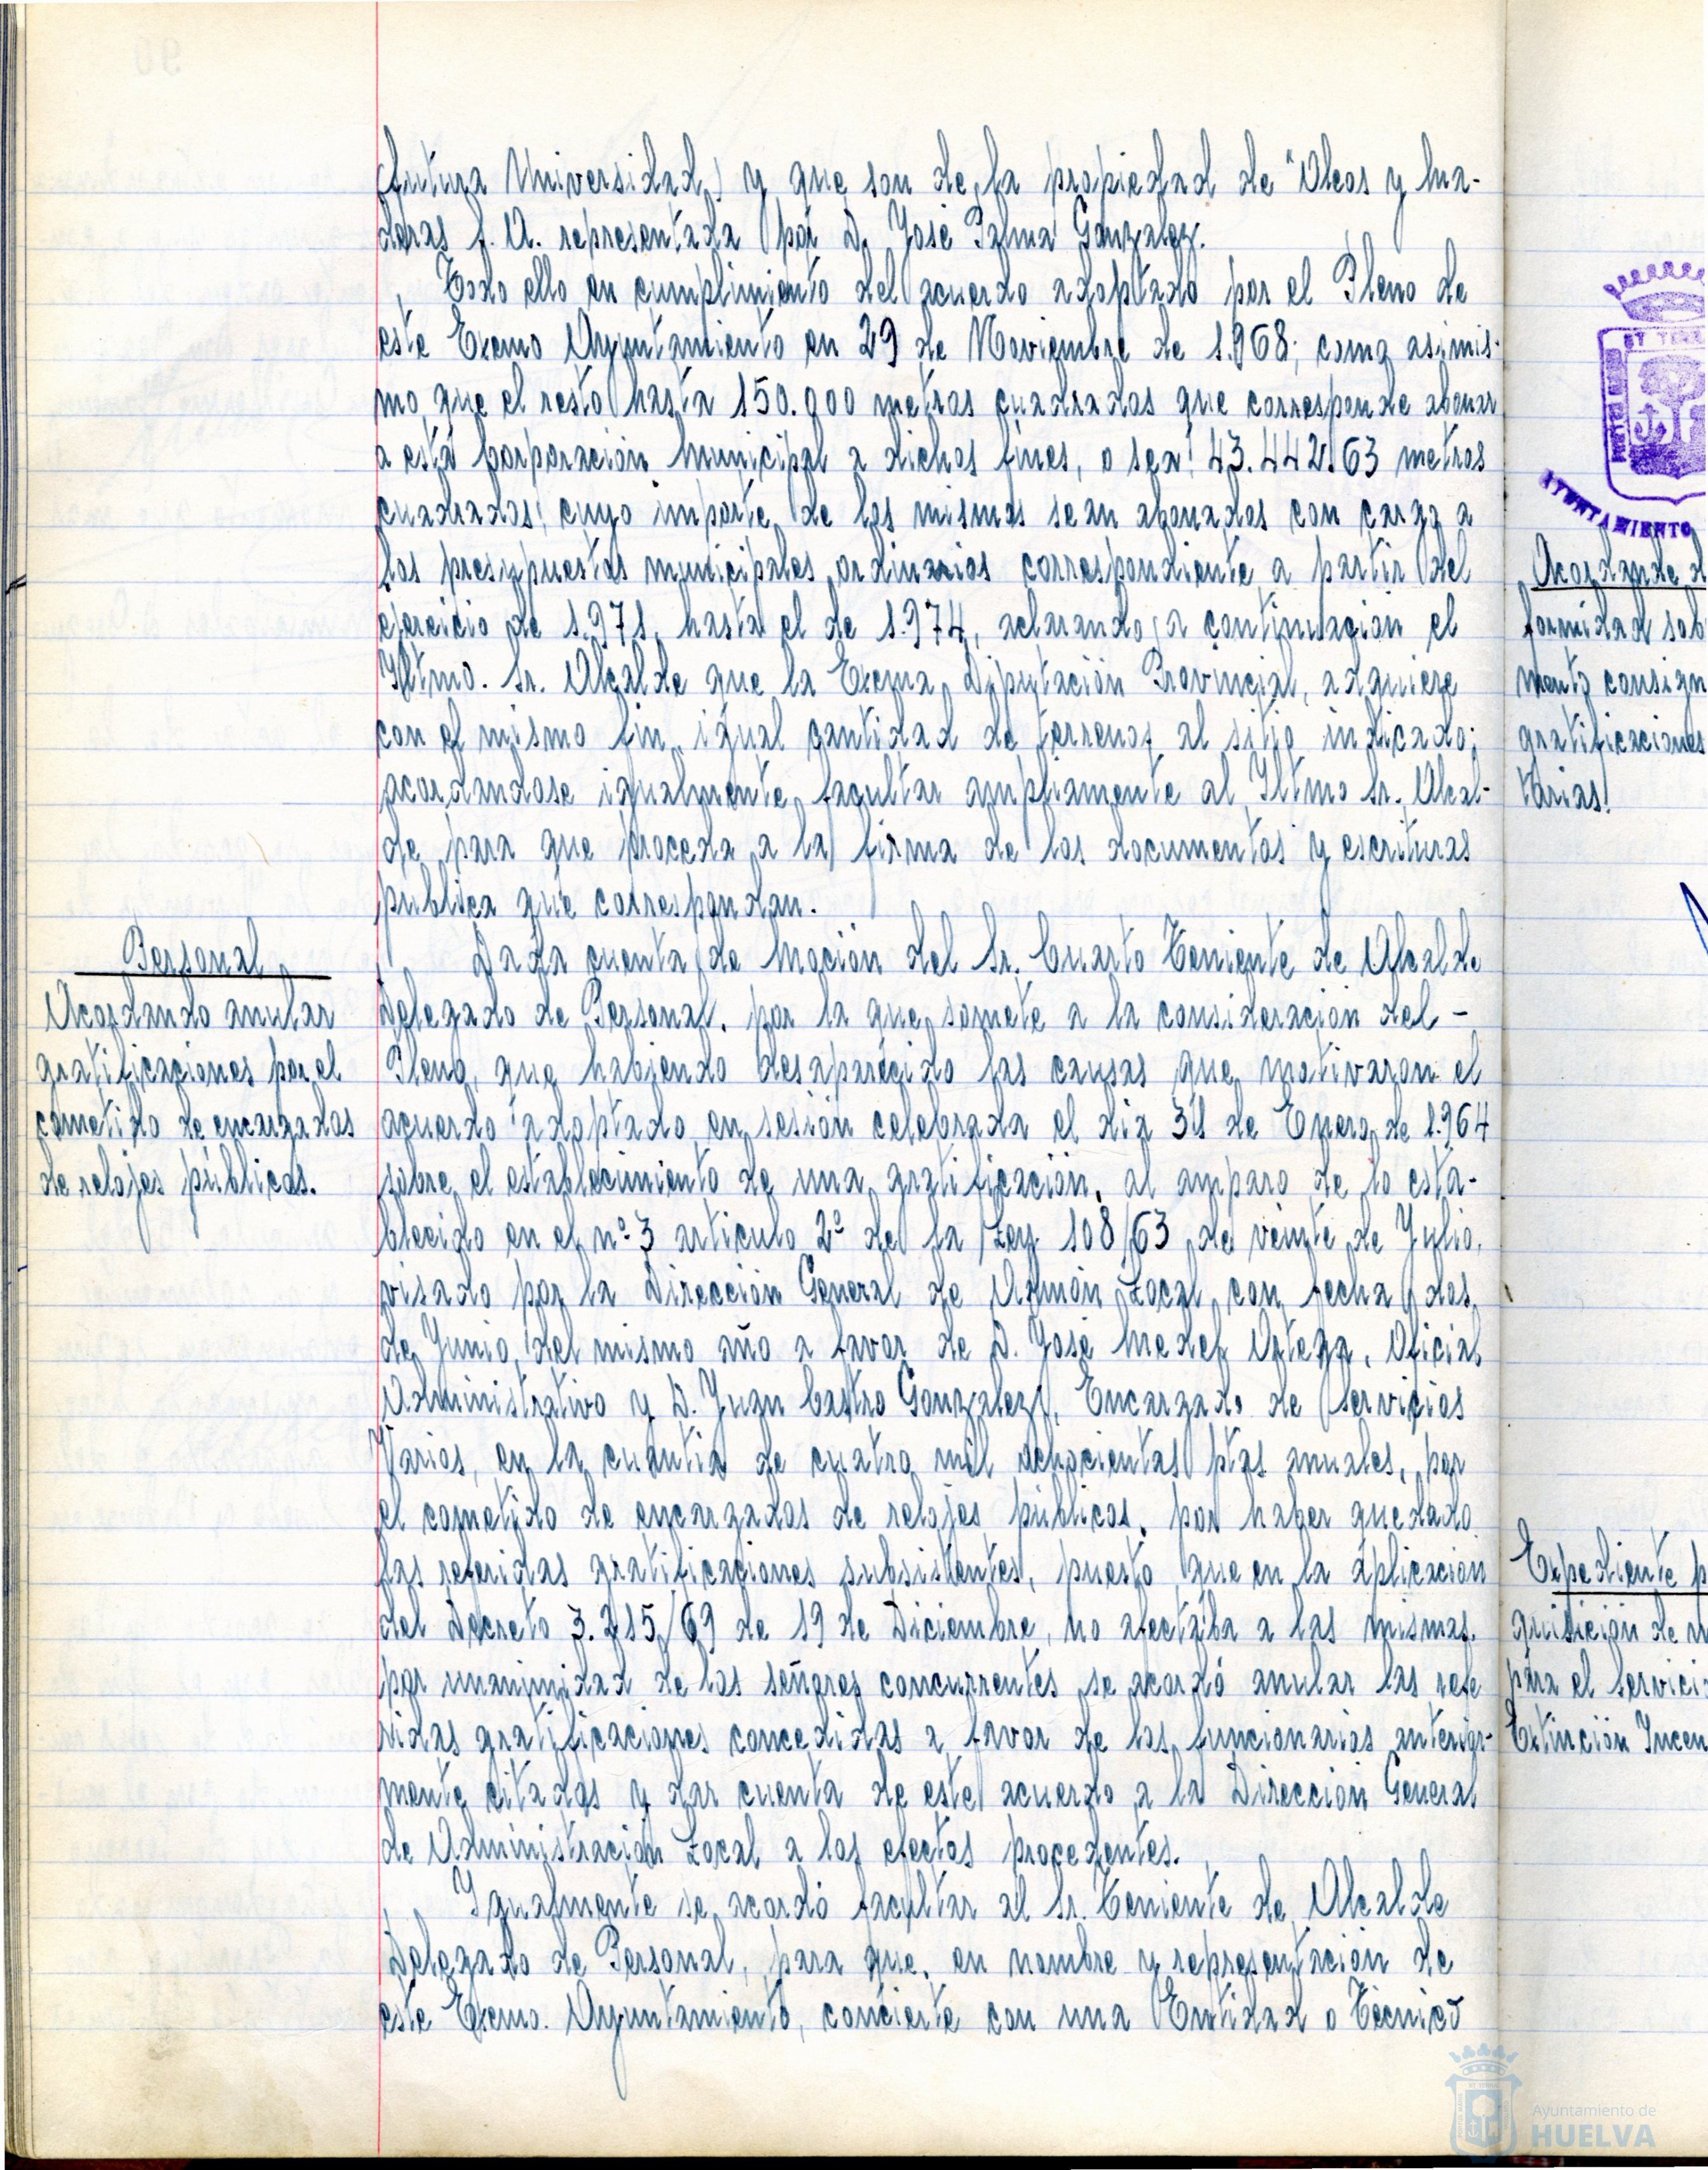 (futura Universidad) y que son de la propiedad de "Aleos y Ma-
deras S. A. representada por D. José Palma Gonzalez.
Todo ello en cumplimiento del acuerdo adoptado por el Pleno de
este Excmo Ayuntamiento en 29 de Noviembre de 1.968; como asimis-
mo que el resto hasta 150.000 metros cuadrados que corresponde abonar
a esta Corporación Municipal a dichos fines, o sea: 43.442.63 metros
cuadrados; cuyo importe de los mismos sean abonados con cargo a
los presupuestos municipales ordinarios correspondiente a partir del
ejercicio de 1.971, hasta el de 1.974, aclarando a continuación el
Iltmo. Sr. Alcalde que la Excma Diputación Provincial, adquiere
con el mismo fin, igual cantidad de terrenos al sitio indicado;
acordandose igualmente facultar ampliamente al Iltmo Sr. Alcal-
de para que proceda a la firma de los documentos y escrituras
publica que correspondan.
Personal
Acordando anular
gratificaciones por el
cometido de encargados
de relojes públicos.
Dada cuenta de Moción del Sr. Cuarto Teniente de Alcalde
Delegado de Personal, por la que somete a la consideración del -
Pleno, que habiendo desaparecido las causas que motivaron el
acuerdo adoptado en sesión celebrada el dia 31 de Enero de 1.964
sobre el establecimiento de una gratificación, al amparo de lo esta-
blecido en el nº 3 articulo 2º de la Ley 108/63 de veinte de Julio,
visado por la Dirección General de Admón Local con fecha dos
de Junio del mismo año a favor de D. José Medel Ortega, Oficial
Administrativo y D. Juan Castro Gonzalez, Encargado de Servicios
Varios, en la cuantia de cuatro mil ochocientas ptas anuales, por
el cometido de encargados de relojes públicos, por haber quedado
las referidas gratificaciones subsistentes, puesto que en la aplicación
del Decreto 3.215/69 de 19 de Diciembre, no afectaba a las mismas,
por unanimidad de los señores concurrentes se acordó anular las refe
ridas gratificaciones concedidas a favor de los funcionarios anterior-
mente citados y dar cuenta de este acuerdo a la Dirección General
de Administración Local a los efectos procedentes.
Igualmente se acordó facultar al Sr. Teniente de Alcalde
Delegado de Personal, para que, en nombre y representación de
este Excmo. Ayuntamiento, concierte con una Entidad o Técnico
AYUNTAMIENTO
Acordando
formidad sob
mento consign
gratificaciones
tarias.
Expediente p
quisición de m
para el Servici
Extinción Incen
Ayuntamiento de
HUELVA